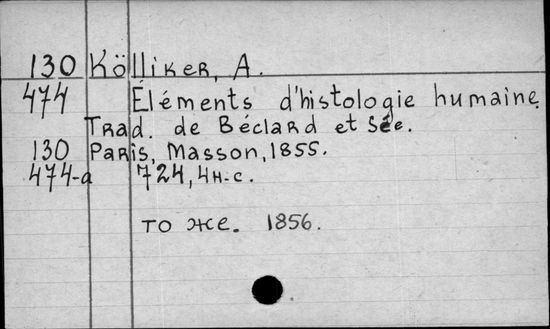 130 Kölliker, A.
474 Éléments d'histologie humaine.
Trad. de Béclard et Sée.
130 Paris, Masson, 1855.
474-a 724, 4 н.с.
то же. 1856.